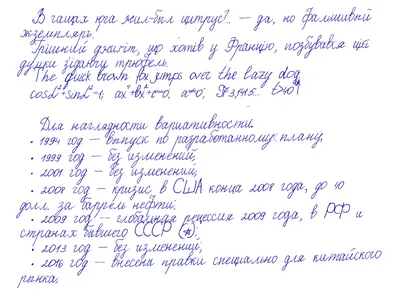 В чащах юга жил-был цитрус?.. — да, но фальшивый
экземпляръ.
Грішний джигіт, що хотів у Францію, позбувався цієї
думки з'їдаючи трюфель.
The quick brown fox jumps over the lazy dog
cosL²+sinL²=1; ax⁴+bx²+c=0, a≠0; π≈3,1415...
Для наглядности вариативности:
• 1994 год — выпуск по разработанному плану;
• 1999 год — без изменений;
• 2001 год — без изменений;
• 2008 год — кризис в США конца 2008 года, до 40
долл. за баррель нефти;
• 2009 год — глобальная рецессия 2009 года, в РФ и
странах бывшего СССР
• 2013 год — без изменений;
• 2016 год — внесена правки специально для китайского
рынка;